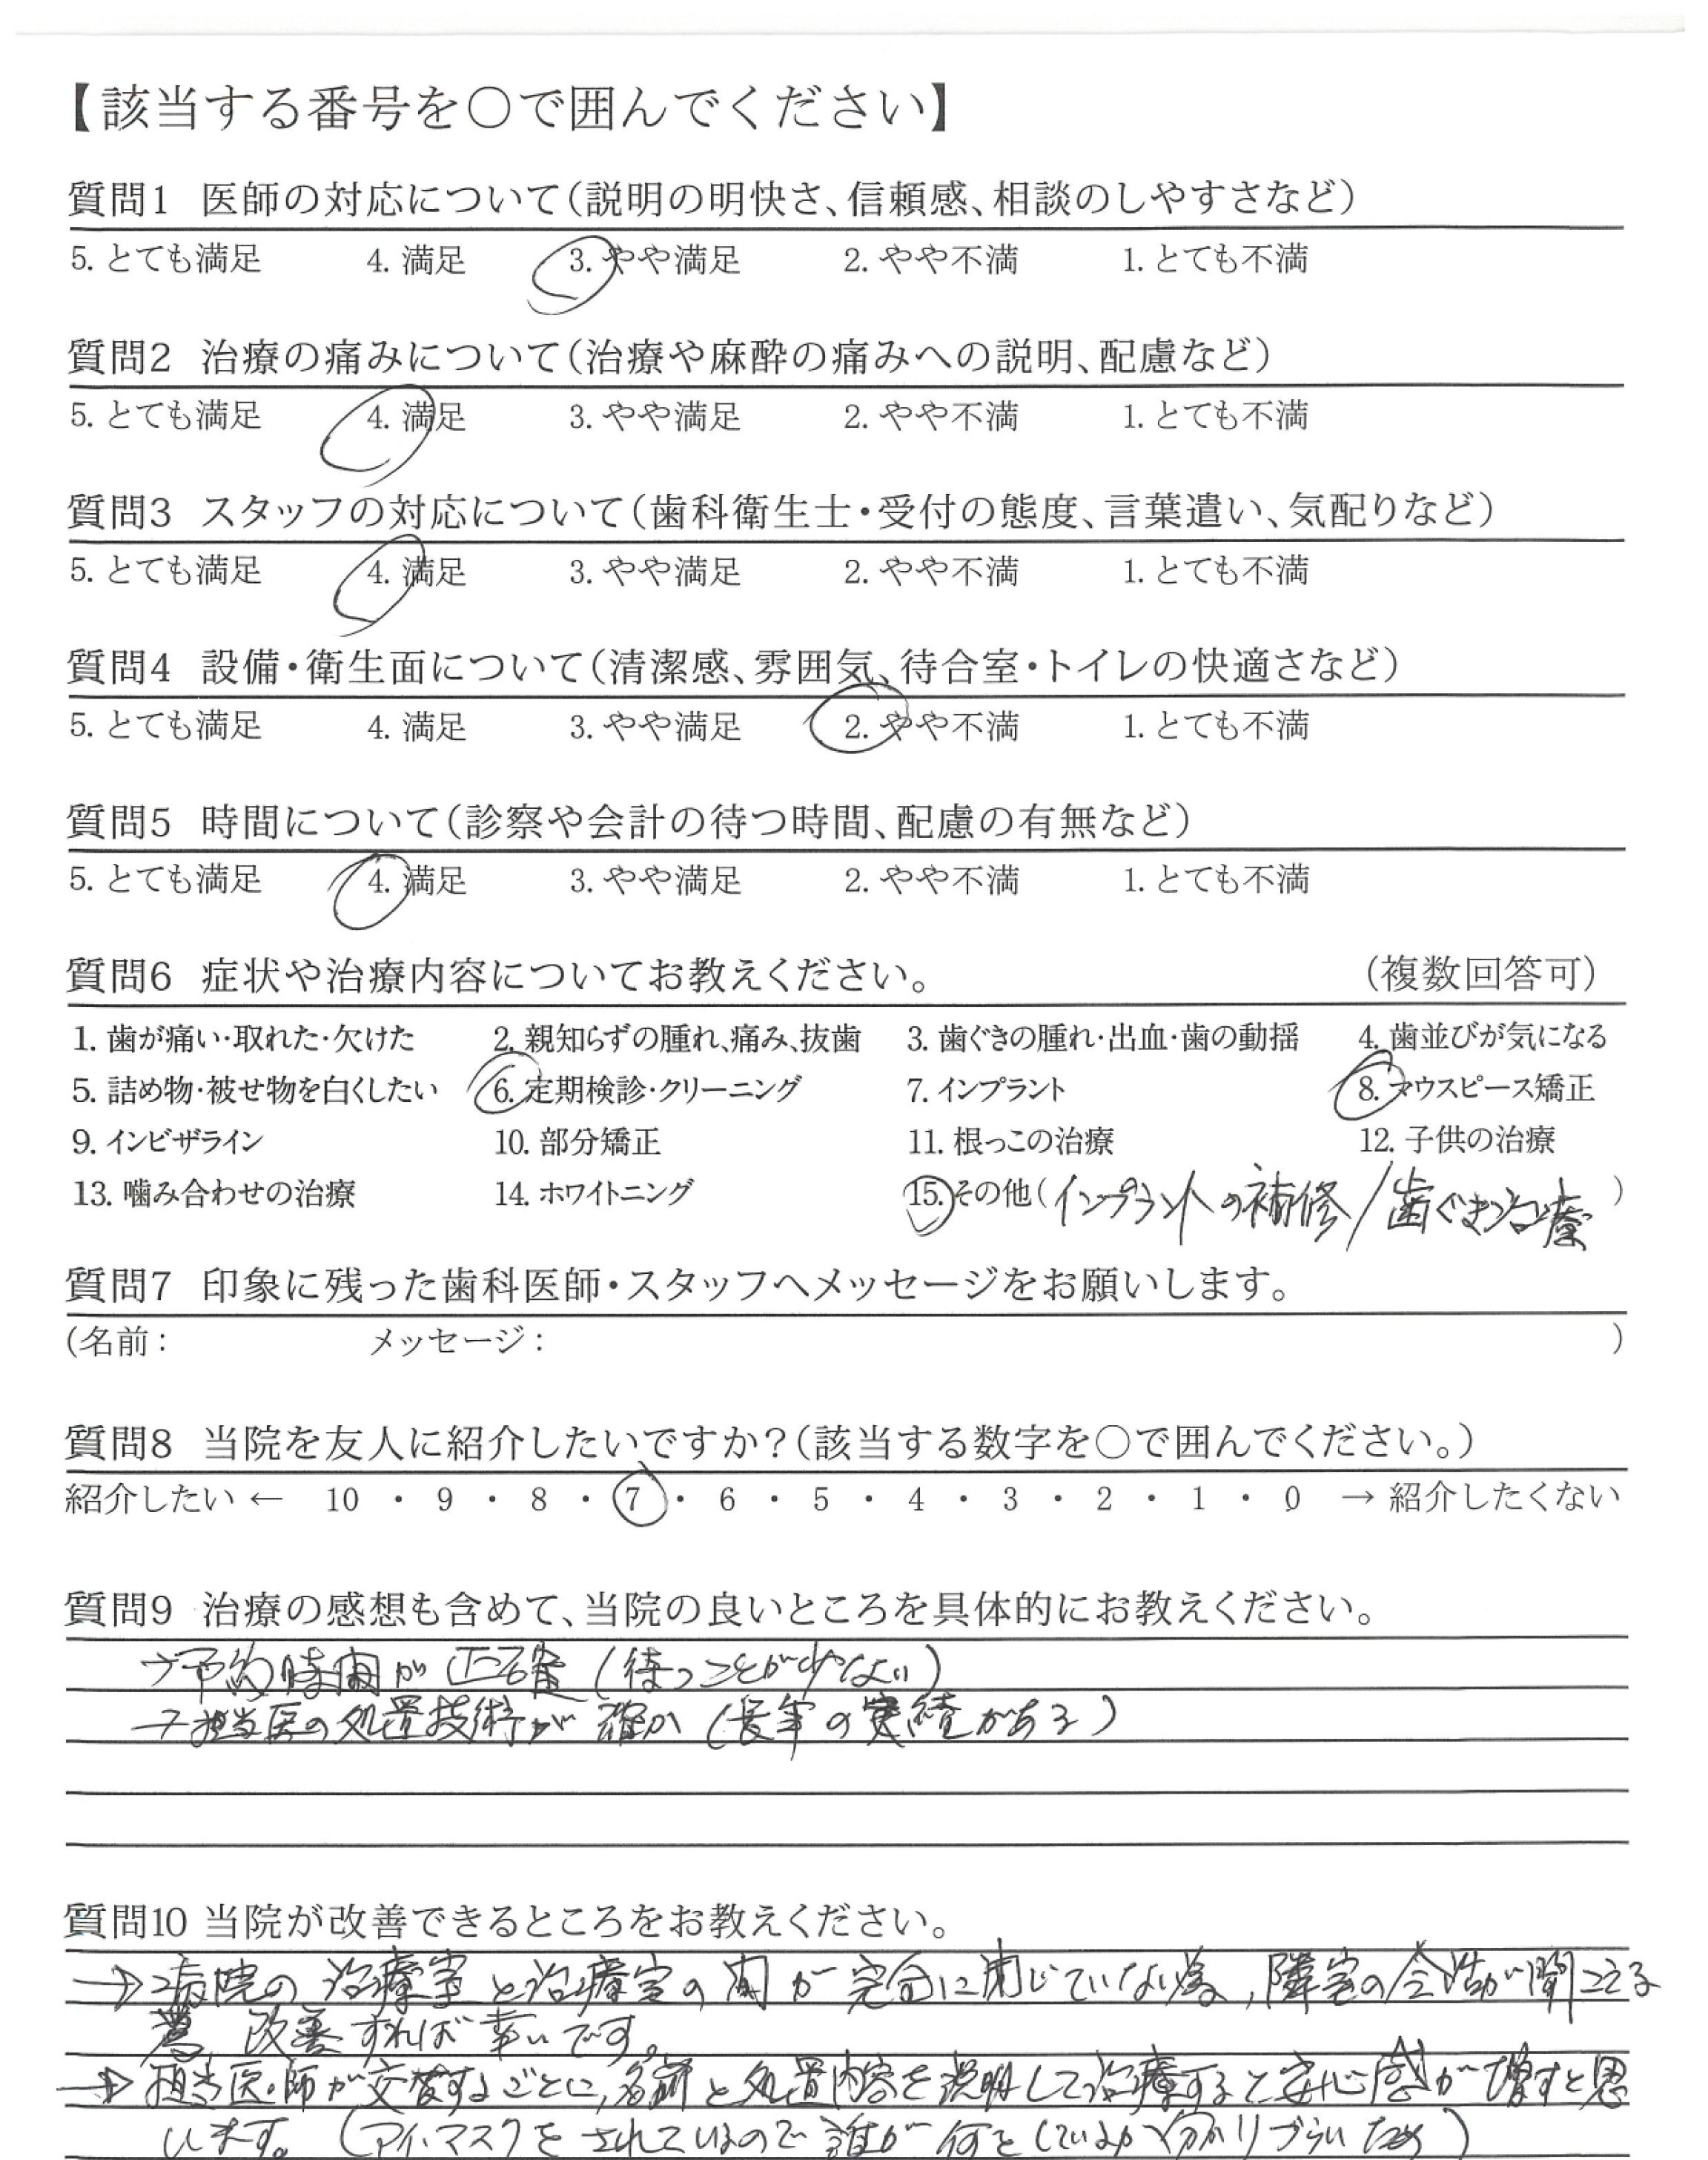 【該当する番号を○で囲んでください】
質問1 医師の対応について(説明の明快さ、信頼感、相談のしやすさなど)
5. とても満足 4. 満足 3. やや満足 2. やや不満 1. とても不満
質問2 治療の痛みについて(治療や麻酔の痛みへの説明、配慮など)
5. とても満足 4. 満足 3. やや満足 2. やや不満 1. とても不満
質問3 スタッフの対応について(歯科衛生士・受付の態度、言葉遣い、気配りなど)
5. とても満足 4. 満足 3. やや満足 2. やや不満 1. とても不満
質問4 設備・衛生面について(清潔感、雰囲気、待合室・トイレの快適さなど)
5. とても満足 4. 満足 3. やや満足 2. やや不満 1. とても不満
質問5 時間について(診察や会計の待つ時間、配慮の有無など)
5. とても満足 4. 満足 3. やや満足 2. やや不満 1. とても不満
質問6 症状や治療内容についてお教えください。 (複数回答可)
1. 歯が痛い・取れた・欠けた 2. 親知らずの腫れ、痛み、抜歯 3. 歯ぐきの腫れ・出血・歯の動揺 4. 歯並びが気になる
5. 詰め物・被せ物を白くしたい 6. 定期検診・クリーニング 7. インプラント 8. マウスピース矯正
9. インビザライン 10. 部分矯正 11. 根っこの治療 12. 子供の治療
13. 噛み合わせの治療 14. ホワイトニング 15. その他(インプラントの補修/歯ぐき治療)
質問7 印象に残った歯科医師・スタッフへメッセージをお願いします。
(名前: メッセージ: )
質問8 当院を友人に紹介したいですか?(該当する数字を○で囲んでください。)
紹介したい ← 10 ・ 9 ・ 8 ・ 7 ・ 6 ・ 5 ・ 4 ・ 3 ・ 2 ・ 1 ・ 0 → 紹介したくない
質問9 治療の感想も含めて、当院の良いところを具体的にお教えください。
→予約時間が正確(待つことが少ない)
→担当医の処置技術が確か(長年の実績がある)
質問10 当院が改善できるところをお教えください。
→病院の治療室と治療室の間が完全に閉じていない為,隣室の会話が聞こえる
為、改善すれば幸いです。
→担当医・師が交替するごとに,名前と処置内容を説明して治療すると安心感が増すと思
います。(アイマスクをされているので誰が何をしているか分かりづらいため)